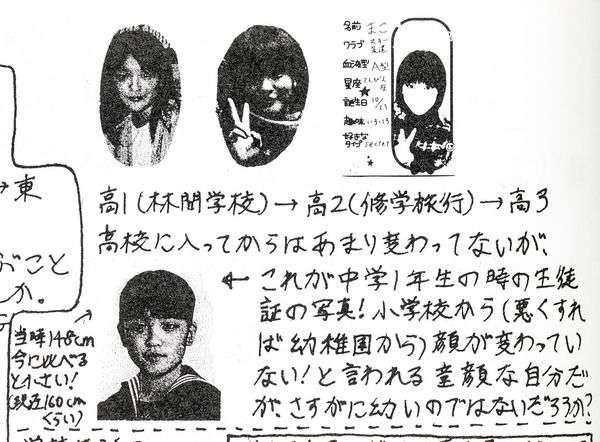 名前 まこ
クラブ
血液型 A型
星座 てんびん座
誕生日 10/11
趣味 いろいろ
好きな
タイプ
高1(林間学校)→高2(修学旅行)→高3
高校に入ってからはあまり変わってないが、
←これが中学1年生の時の生徒
証の写真!小学校から(悪くすれ
ば幼稚園から)顔が変わってい
ない!と言われる童顔な自分だ
が、さすがに幼いのではないだろうか?
→東
こと
か。
当時148cm
今に比べる
と小さい!
(現在160cm
くらい)